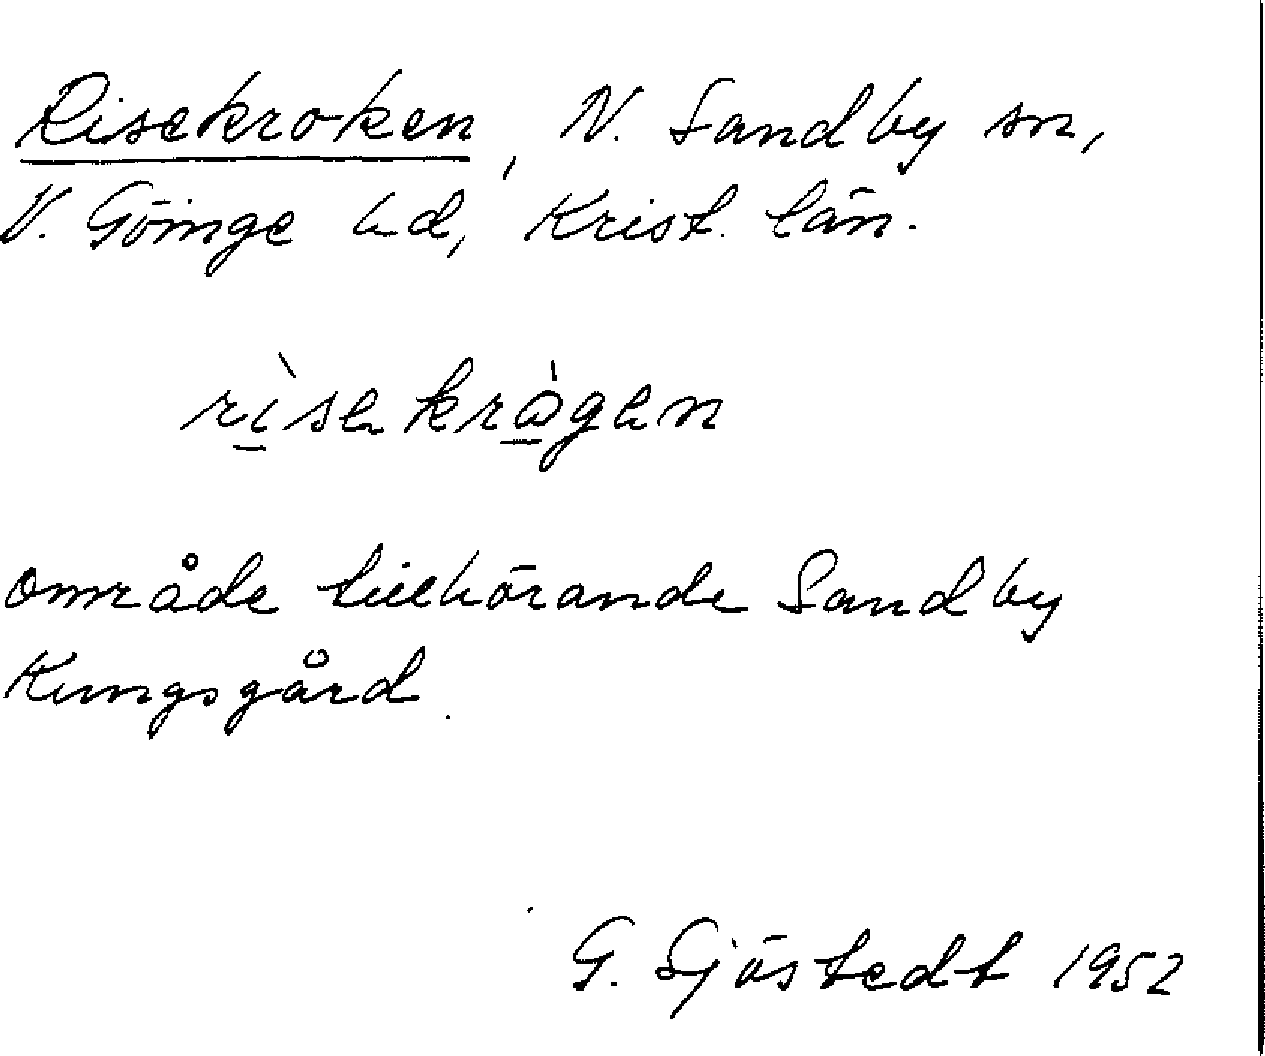 Risekroken, N. Sandby sn,
V. Göinge hd, Krist. län.
rìsekrògen
område tillhörande Sandby
Kungsgård.
G. Sjöstedt 1952